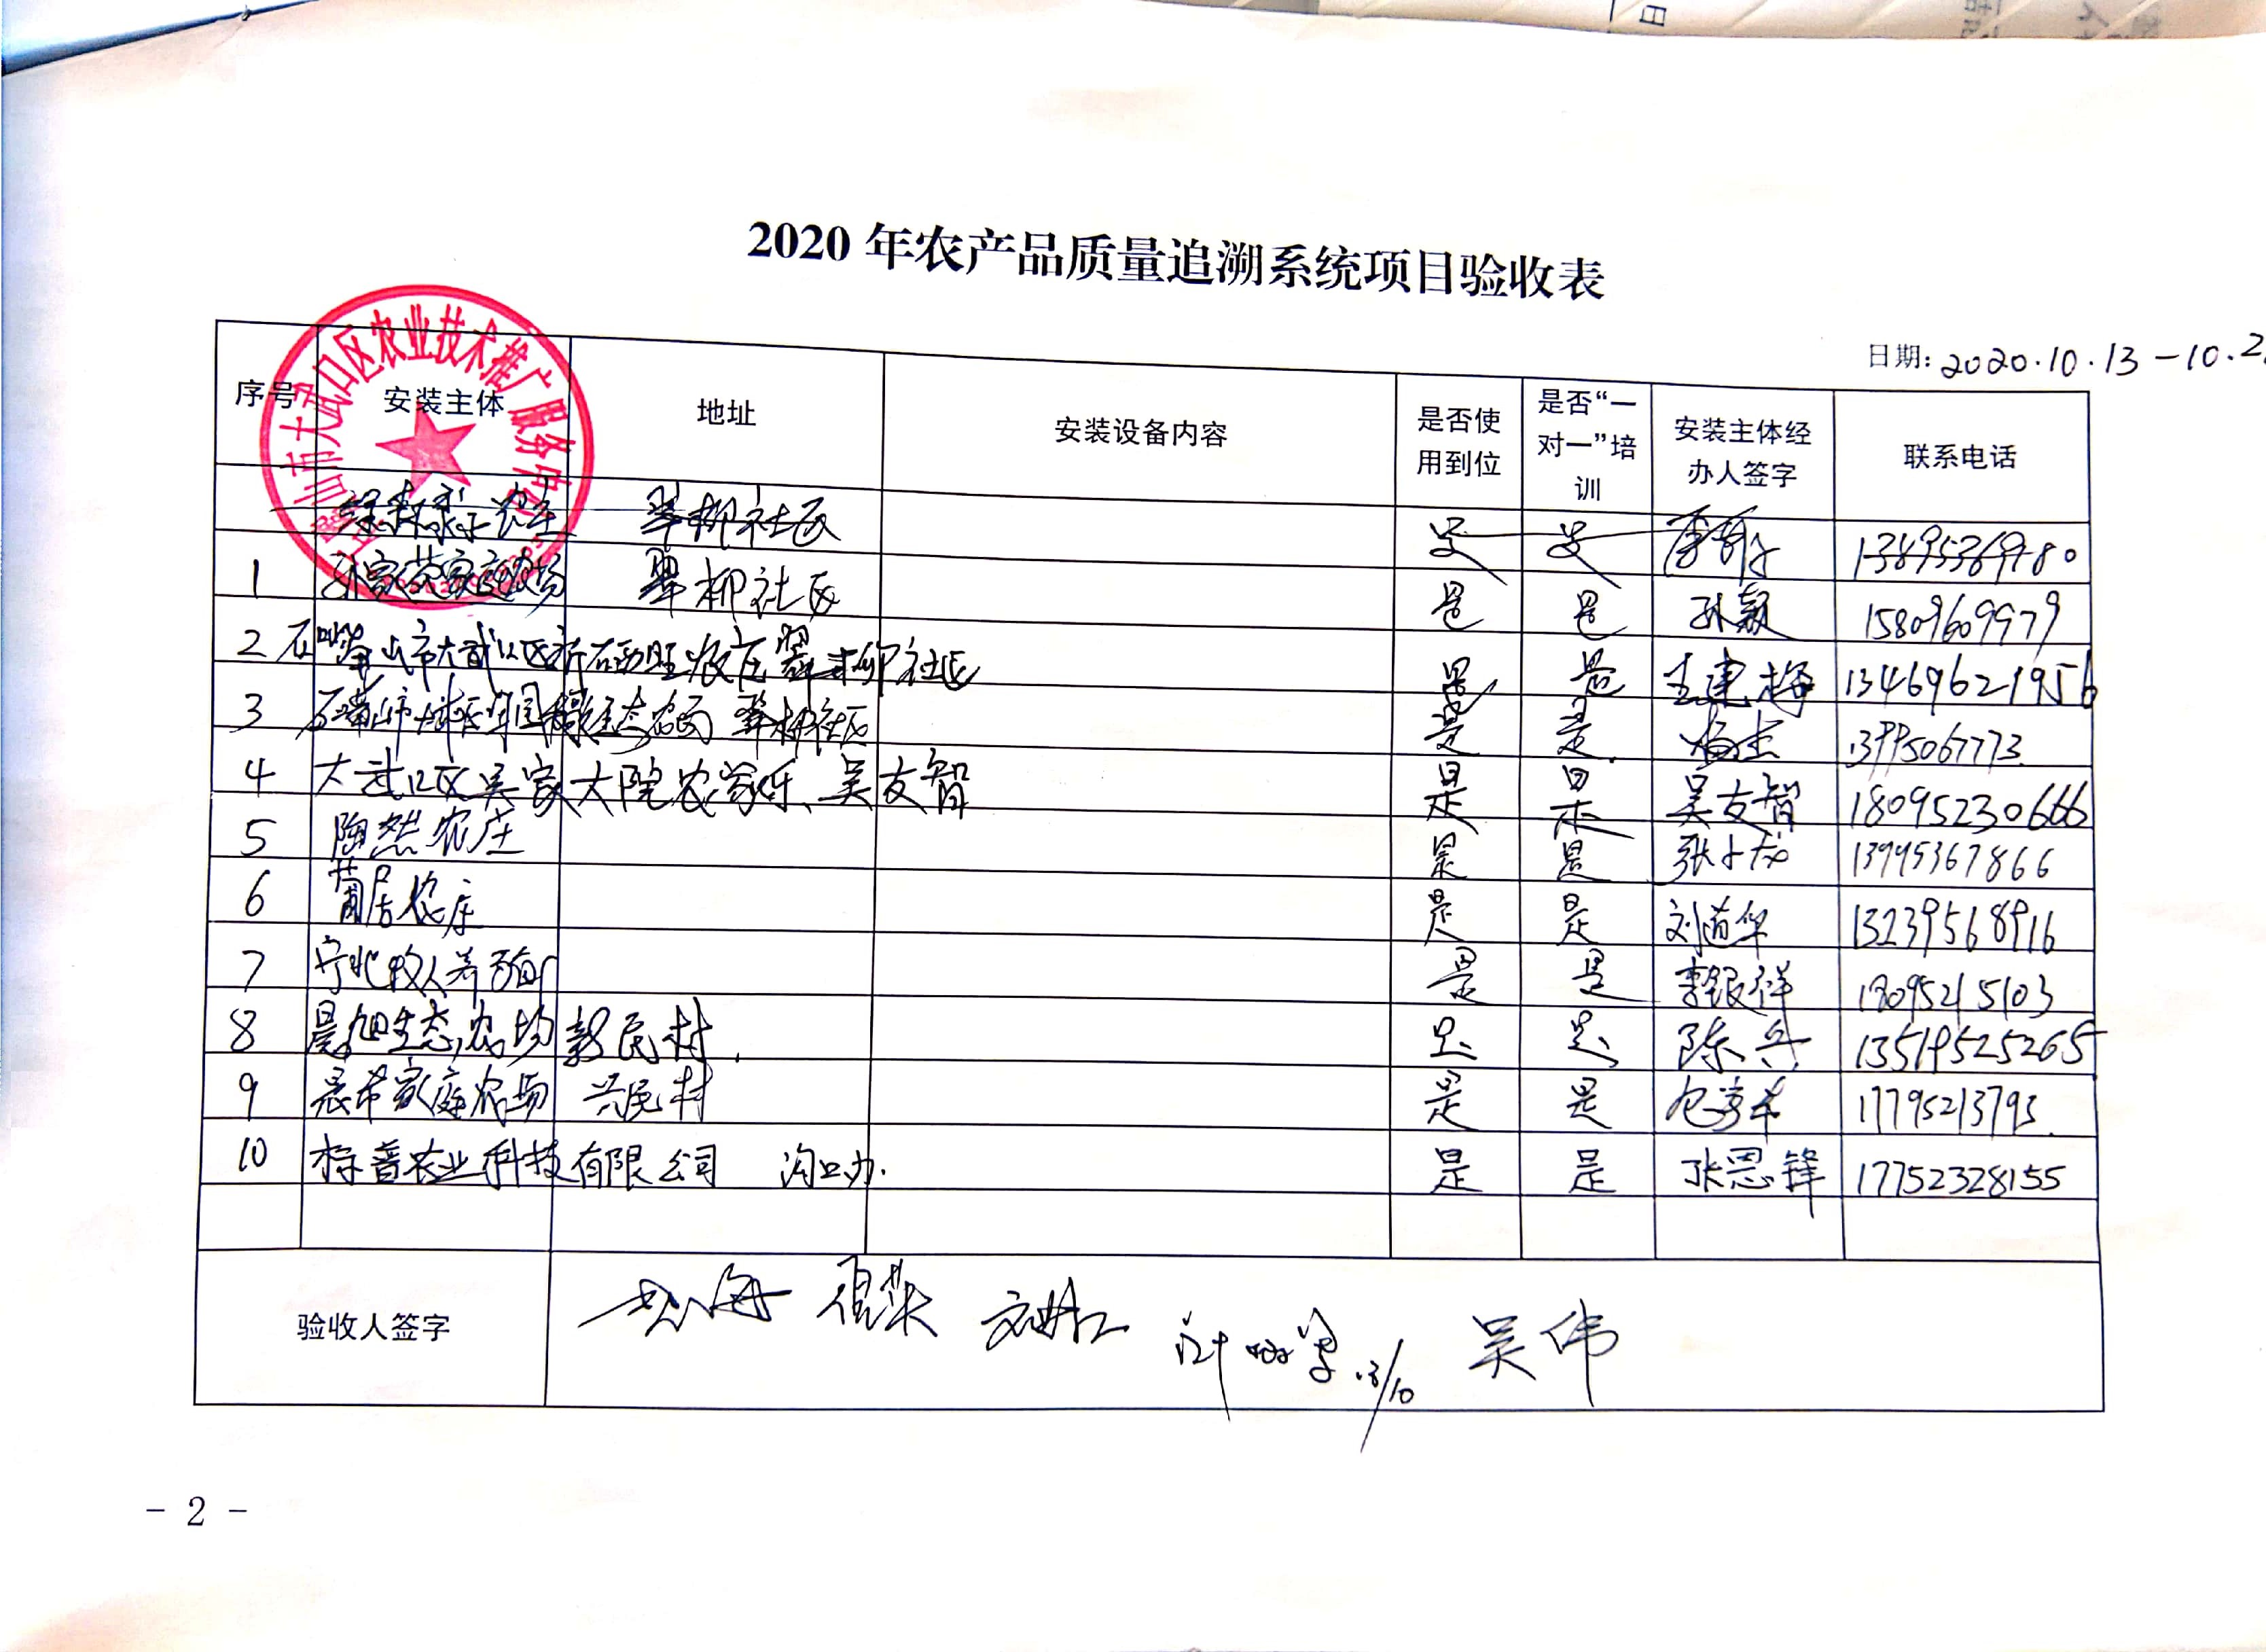 2020 年农产品质量追溯系统项目验收表
日期: 2020.10.13-10.2
序号 安装主体 地址 安装设备内容 是否使用到位 是否“一对一”培训 安装主体经办人签字 联系电话
石嘴山市大武口区农业技术推广服务中心
翠柳社区 13895369780
1 孙家茶家庭农场 翠柳社区 是 是 孙颖 15809609979
2 石嘴山市大武口区 农庄 翠柳社区 是 是 王建梅 13469621956
3 生态农场 翠柳社区 是 是 杨杰 13995067773
4 大武口区吴家大院农家乐、吴友智 是 是 吴友智 18095230666
5 陶然农庄 是 是 13995367866
6 莆居农庄 是 是 刘道华 13239568916
7 宁北牧人养殖 是 是 李银祥 18095215103
8 晨旭生态农场 是 是 陈兵 13519525265
9 家庭农场 兴民村 是 是 17795213793
10 农业科技有限公司 沟口办. 是 是 张恩锋 17752328155
验收人签字 吴伟
- 2 -